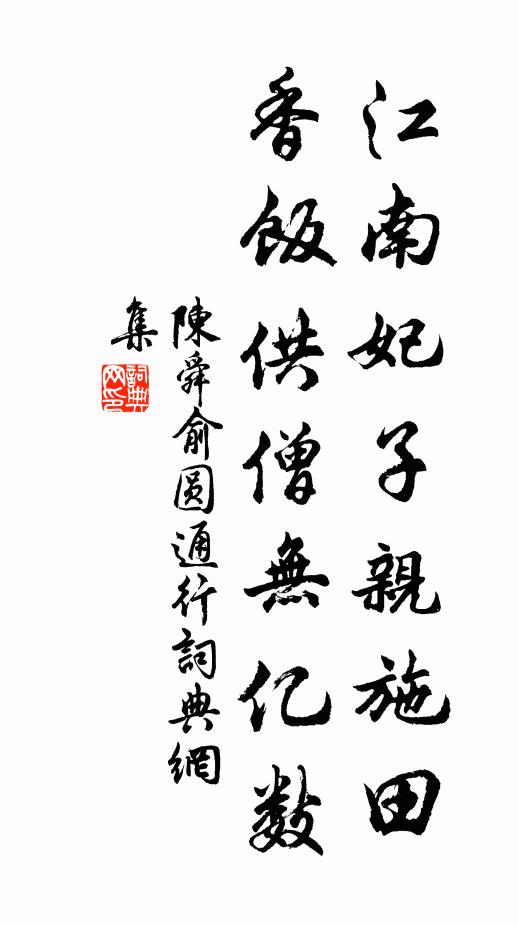 江南妃子親施田
香飯供僧無亿数
陳舜俞圆通行詞典網
集
詞典
网印